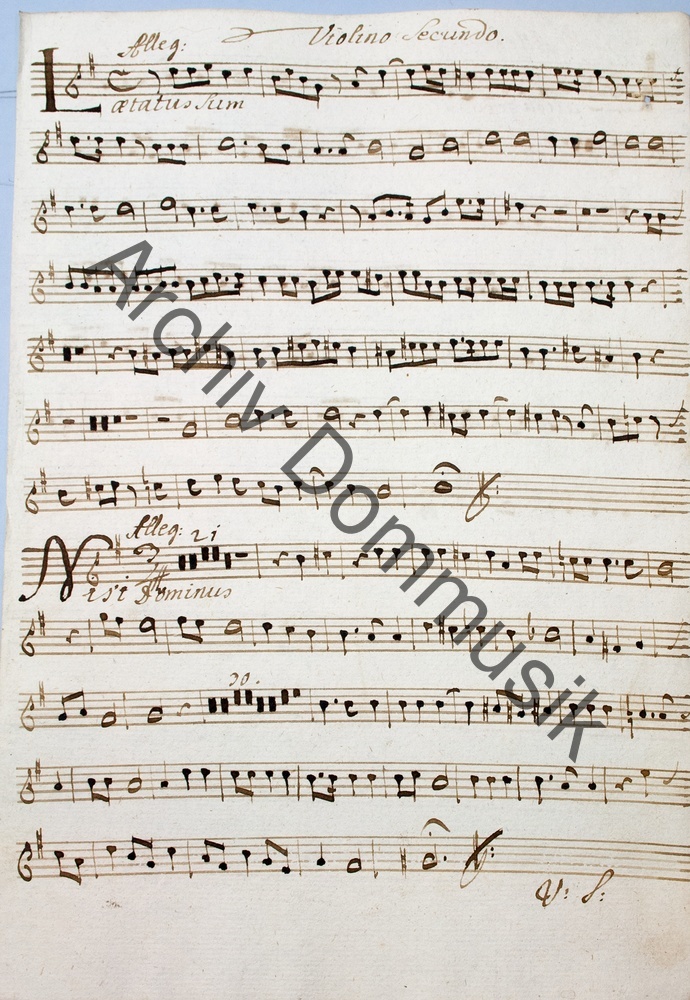 Violino Secundo.
Alleg:
Lætatus Sum
Alleg: 21
Nisi Dominus
30.
V: S:
Archiv Dommusik